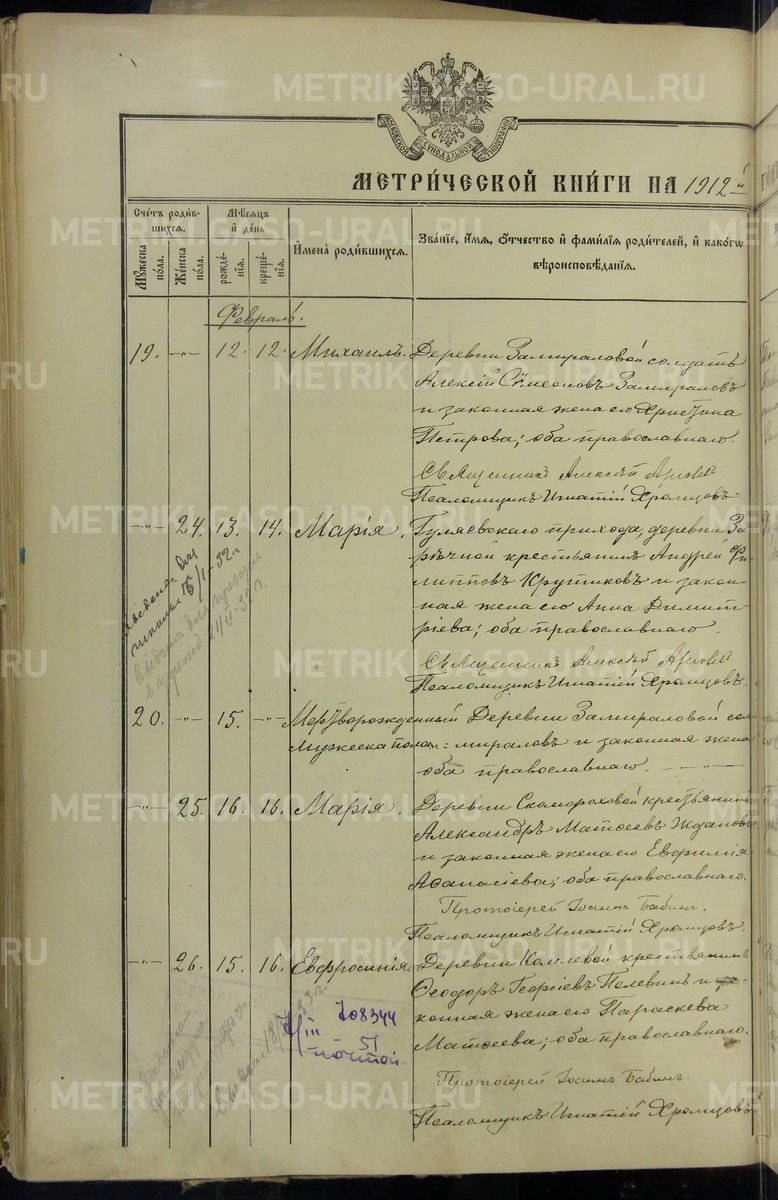 МОСКОВСКОЙ СѴНОДАЛЬНОЙ ТИПОГРАФІИ
МЕТРИ́ЧЕСКОЙ КНИ́ГИ НА 1912 й
Сче́тъ роди́в-
шихся.
Му́жеска
по́ла.
Же́нска
по́ла.
Мѣ́сяцъ
и҆ де́нь
рожде́-
нїѧ.
креще́-
нїѧ.
И҆мена̀ роди́вшихся.
Зва́нїе, и҆́мѧ, о҆́тчество и҆ фами́лїѧ роди́телей, и҆ како́гѡ
вѣроисповѣ́данїѧ.
Февраль.
19. —"— 12. 12. Михаилъ. Деревни Замираловой солдатъ
Алексій Сѵмеоновъ Замираловъ
и законная жена его Христина
Петрова; оба православнаго.
Священникъ Алексѣй
Псаломщикъ Игнатій Хромцовъ
—"— 24. 13. 14. Марія. Гуляевскаго прихода, деревни За-
рѣчной крестьянинъ Андрей Фи-
липповъ Крутиковъ и закон-
ная жена его Анна Димит-
ріева; оба православнаго.
Священникъ Алексѣй
Псаломщикъ Игнатій Хромцовъ.
20. —"— 15. —"— Мертворожденный Деревни Замираловой сол-
Мужеска пола. = мираловъ и законная жена
оба православнаго. —"—
—"— 25. 16. 16. Марія. Деревни Скомороховой крестьянинъ
Александръ Матѳеевъ Ждановъ
и законная жена его Евфимія
Аѳанасіева; оба православнаго.
Протоіерей Іоаннъ Бабинъ.
Псаломщикъ Игнатій Хромцовъ.
—"— 26. 15. 16. Евфросинія Деревни Комлевой крестьянинъ
Ѳеодоръ Георгіевъ Пелевинъ и за-
конная жена его Параскева
Матѳеева; оба православнаго.
Протоіерей Іоаннъ Бабинъ.
Псаломщикъ Игнатій Хромцовъ
III 708344
51
почтой
METRIKI.GASO-URAL.RU